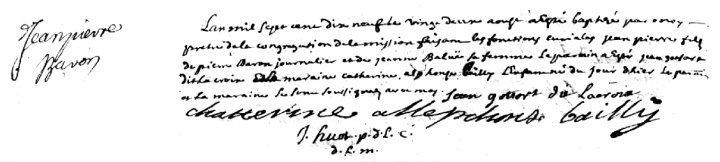 Jean pierre
Baron
L'an mil sept cent dix neuf le vingt deux aoust a esté baptisé par moy
prestre de la congregation de la mission faisant les fonctions curiales jean pierre fils
de pierre Baron journalier et de jeanne Baluë sa femme le parain a esté jean gottort
dit la croix la maraine catherine alphonse Bailly L'enfant né du jour d'hier le parain
et la maraine se sont soussignez avec moy Jean gottort dit Lacroix
chatterine allephonse bailly
J. huot. p. d. L. C.
d. L. m.